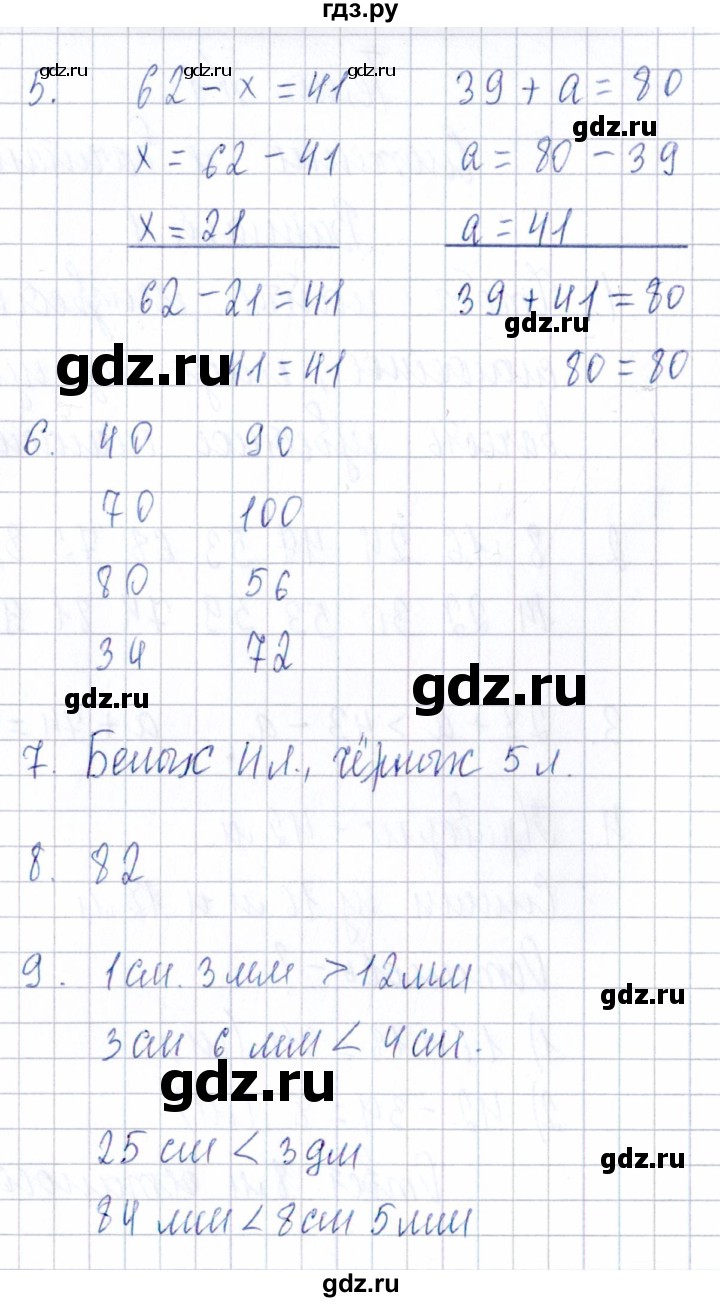 гдз.ру
5. 62 - x = 41 39 + a = 80
x = 62 - 41 a = 80 - 39
x = 21 a = 41
62 - 21 = 41 39 + 41 = 80
41 = 41 80 = 80
6. 40 90
70 100
80 56
34 72
7. Белых 4 л., чёрных 5 л.
8. 82
9. 1 см. 3 мм > 12 мм
3 см 6 мм < 4 см.
25 см < 3 дм
84 мм < 8 см 5 мм
gdz.ru
gdz.ru
gdz.ru
gdz.ru
gdz.ru
gdz.ru
gdz.ru
gdz.ru
gdz.ru
gdz.ru
gdz.ru